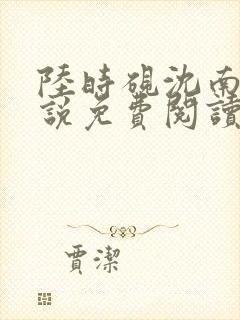 陸時硯沈南
說免費閱讀
賈潔